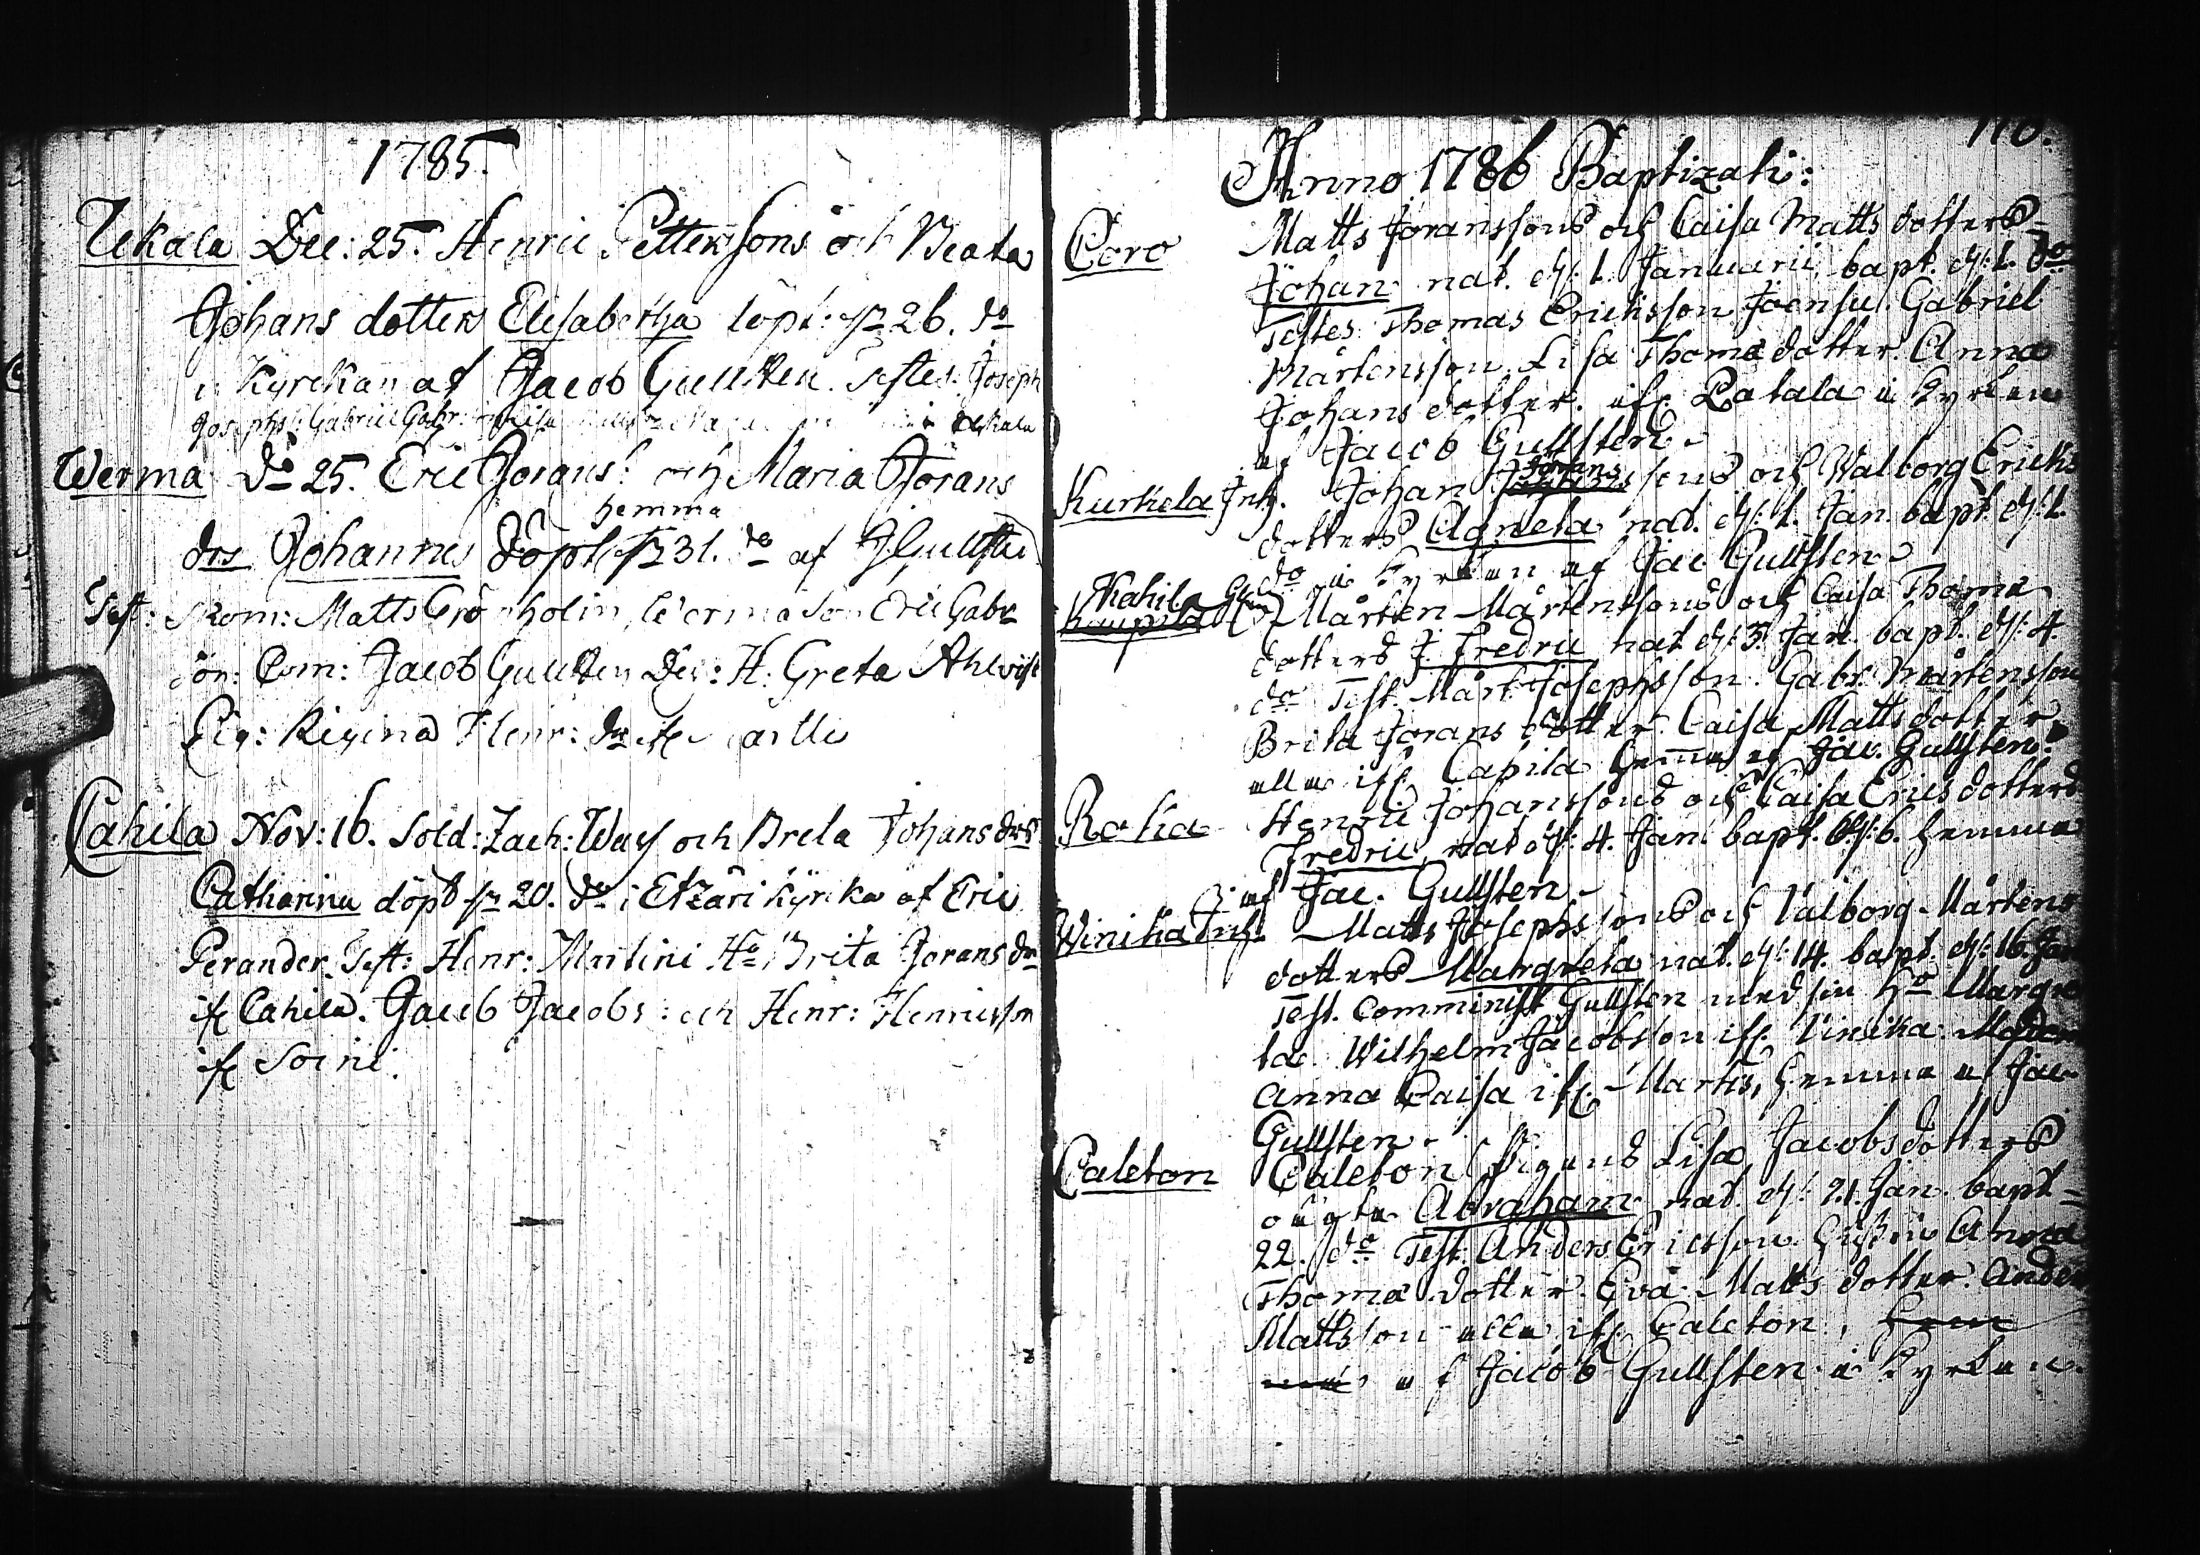 1785.
Ukala Dec: 25. Henric Petterssons och Beata
Johans dotters Elisabetha döpt: 26. do
i Kyrckan af Jacob Gullsten. Testes: Joseph
Josephs: Gabriel Gabr: Ukala
Werma do 25. Eric Jörans: och Maria Jörans
hemma
drs Johannes döpt 31. do af J Gullsten
Test: Kom: Matts Grönholm, Werma Son Eric Gabr
Com: Jacob Gullsten H: Greta Ahlqvist
Pig: Regina Henr: dr
Cahila Nov: 16. Sold: Zach: Way och Breta Johans drs
Catharina döpt 20. do i Etzäri Kyrka af Eric
Perander. Test: Henr: Martini Ho Brita Jörans dr
ifr Cahila. Jacob Jacobs: och Henr: Henricsson
ifr Soini.
110.
Anno 1786 Baptizati:
Coro Matts Jöranssons och Caisa Matts dotters
Johan nat. d: 1. Januarii, bapt. d: 1. do
Testes Thomas Ericksson Joensu. Gabriel
Mårtensson. Lisa Thomædotter. Anna
Johansdotter. ifr. Ratala i Kyrkan
af Jacob Gullsten.
Jörans
Kurkela Inh. Johan sons och Walborg Ericks
dotters Agneta nat. d: 1. Jan. bapt. d: 1.
do i Kyrkan af Jac Gullsten
Kahila Mårten Mårtenssons och Caisa Thomæ
dotters Fredric nat d: 3. Jan. bapt. d: 4.
do Test. Mårt. Josephsson. Gabr. Mårtensson
Brita Jörans dotter. Caisa Matts dotter
alla ifr. Capila hemma af Jac. Gullsten.
Raha Henric Johanssons och Caisa Erics dotters
Fredric, nat d: 4. Jan. bapt. d: 6. hemma
af Jac. Gullsten
Winika Inh. Matts Josephssons och Valborg Mårtens
dotters Margreta nat. d: 14. bapt. d: 16. Jan
Test. Comminist Gullsten med sin Ho Margre
ta. Wilhelm Jacobsson ifr. Vinika.
Anna Caisa ifr. Martis, hemma af Jac
Gullsten.
Caleton Caleton Pigans Lisa Jacobsdotters
oägta Abraham nat. d: 21. Jan. bapt
22. do Test. Anders Ericsson. Hustru Anna
Thomæ dotter. Eva Matts dotter. Anders
Mattsson alla ifr. Caleton, hem
ma, af Jacob Gullsten i Kyrkan.